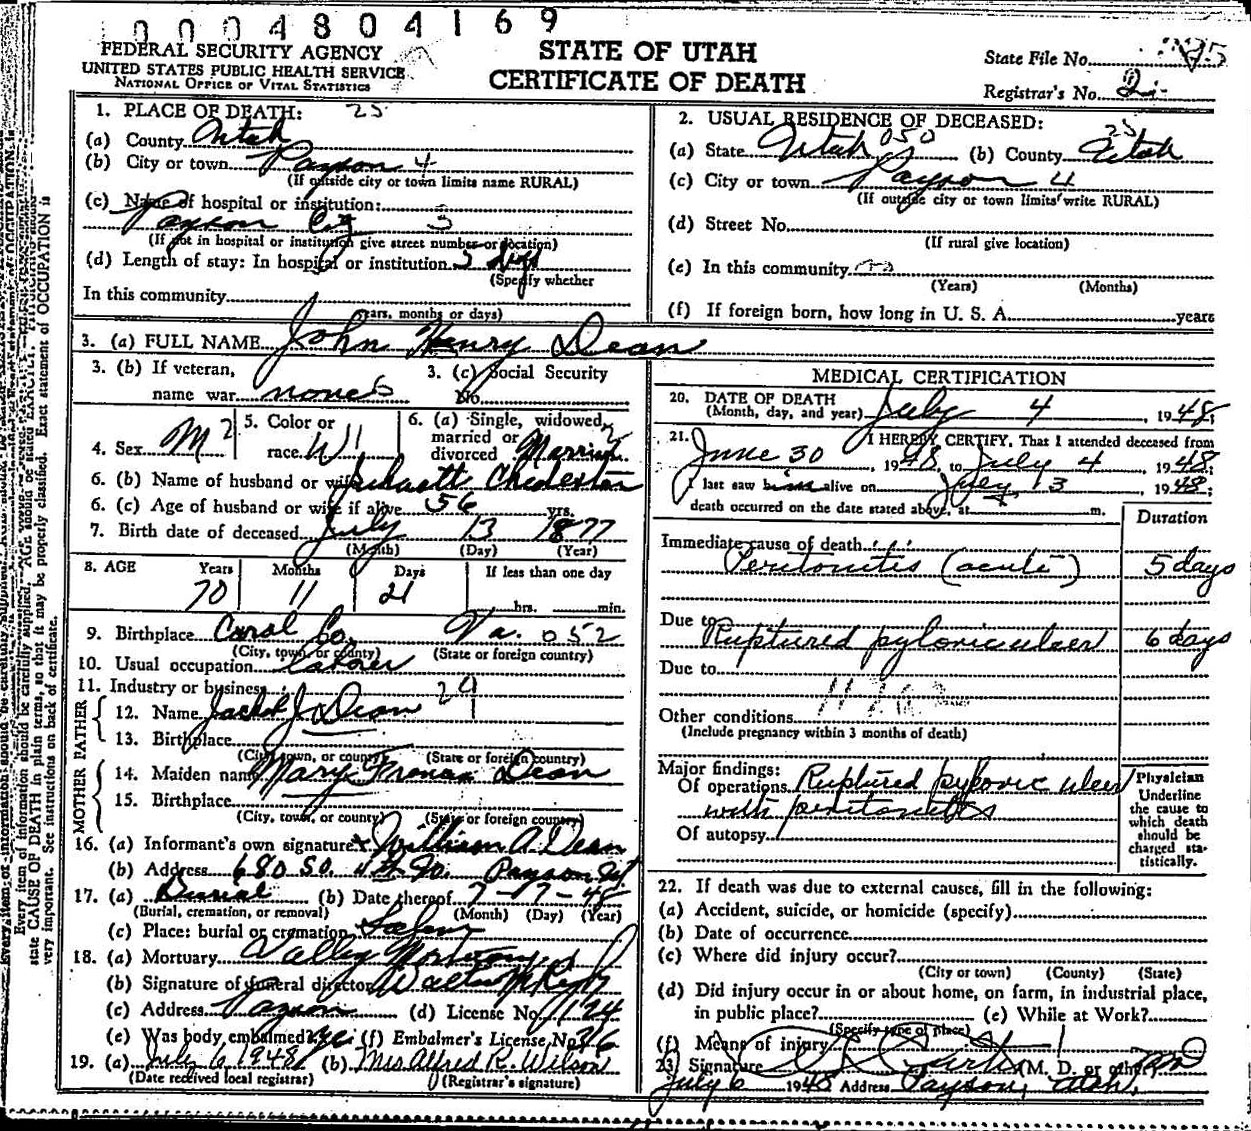 0004804169
FEDERAL SECURITY AGENCY
UNITED STATES PUBLIC HEALTH SERVICE
NATIONAL OFFICE OF VITAL STATISTICS
STATE OF UTAH
CERTIFICATE OF DEATH
State File No.
Registrar's No.
1. PLACE OF DEATH: 25
(a) County Utah
(b) City or town Payson 4
(If outside city or town limits name RURAL)
(c) Name of hospital or institution:
Payson City 3
(If not in hospital or institution give street number or location)
(d) Length of stay: In hospital or institution 5 days
(Specify whether
In this community
years, months or days)
2. USUAL RESIDENCE OF DECEASED:
(a) State Utah 050 (b) County Utah 25
(c) City or town Payson 4
(If outside city or town limits write RURAL)
(d) Street No.
(If rural give location)
(e) In this community
(Years) (Months)
(f) If foreign born, how long in U. S. A. years
3. (a) FULL NAME John Henry Dean
3. (b) If veteran, 3. (c) Social Security
name war none 6 No.
4. Sex M 2 5. Color or race W 1 6. (a) Single, widowed, married or divorced Married 2
6. (b) Name of husband or wife Chederton
6. (c) Age of husband or wife if alive 56 yrs.
7. Birth date of deceased July 13 1877
(Month) (Day) (Year)
8. AGE Years Months Days If less than one day
70 11 21 hrs. min.
9. Birthplace Carol Co. Va. 052
(City, town, or county) (State or foreign country)
10. Usual occupation laborer
11. Industry or business
FATHER
12. Name J. Dean 29
13. Birthplace
(City, town, or county) (State or foreign country)
MOTHER
14. Maiden name Mary Dean
15. Birthplace
(City, town, or county) (State or foreign country)
16. (a) Informant's own signature x William A. Dean
(b) Address 680 So. 4th Payson Ut
17. (a) Burial (b) Date thereof 7-7-48
(Burial, cremation, or removal) (Month) (Day) (Year)
(c) Place: burial or cremation Salem
18. (a) Mortuary Valley Mortuary
(b) Signature of funeral director Walter
(c) Address Payson (d) License No. 124
(e) Was body embalmed yes (f) Embalmer's License No.
19. (a) July 6 1948 (b) Mrs Alfred R. Wilson
(Date received local registrar) (Registrar's signature)
MEDICAL CERTIFICATION
20. DATE OF DEATH
(Month, day, and year) July 4 1948;
21. I HEREBY CERTIFY, That I attended deceased from
June 30, 1948, to July 4 1948;
I last saw him alive on July 3 1948;
death occurred on the date stated above, at m.
Duration
Immediate cause of death
Peritonitis (acute) 5 days
Due to
Ruptured pyloric ulcer 6 days
Due to
Other conditions
(Include pregnancy within 3 months of death)
Major findings:
Of operations Ruptured pyloric ulcer
with peritonitis
Of autopsy
Physician
Underline
the cause to
which death
should be
charged sta-
tistically.
22. If death was due to external causes, fill in the following:
(a) Accident, suicide, or homicide (specify)
(b) Date of occurrence
(c) Where did injury occur?
(City or town) (County) (State)
(d) Did injury occur in or about home, on farm, in industrial place,
in public place? (e) While at Work?
(Specify type of place)
(f) Means of injury
23) Signature (M. D. or other) MD
July 6 1948 Address Payson, Utah.
state CAUSE OF DEATH in plain terms, so that it may be properly classified. Exact statement of OCCUPATION is
very important. See instructions on back of certificate.